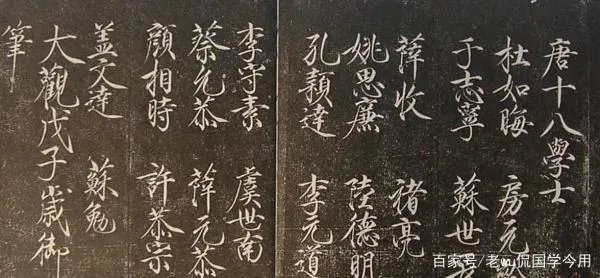 唐十八學士
杜如晦 房元
于志寧 蘇世
薛收 褚亮
姚思廉 陸德明
孔穎達 李元道
李守素 虞世南
蔡允恭 薛元恭
顏相時 許恭宗
盖文達 蘇勉
大觀戊子歲御
筆
百家号/老wu侃国学今用